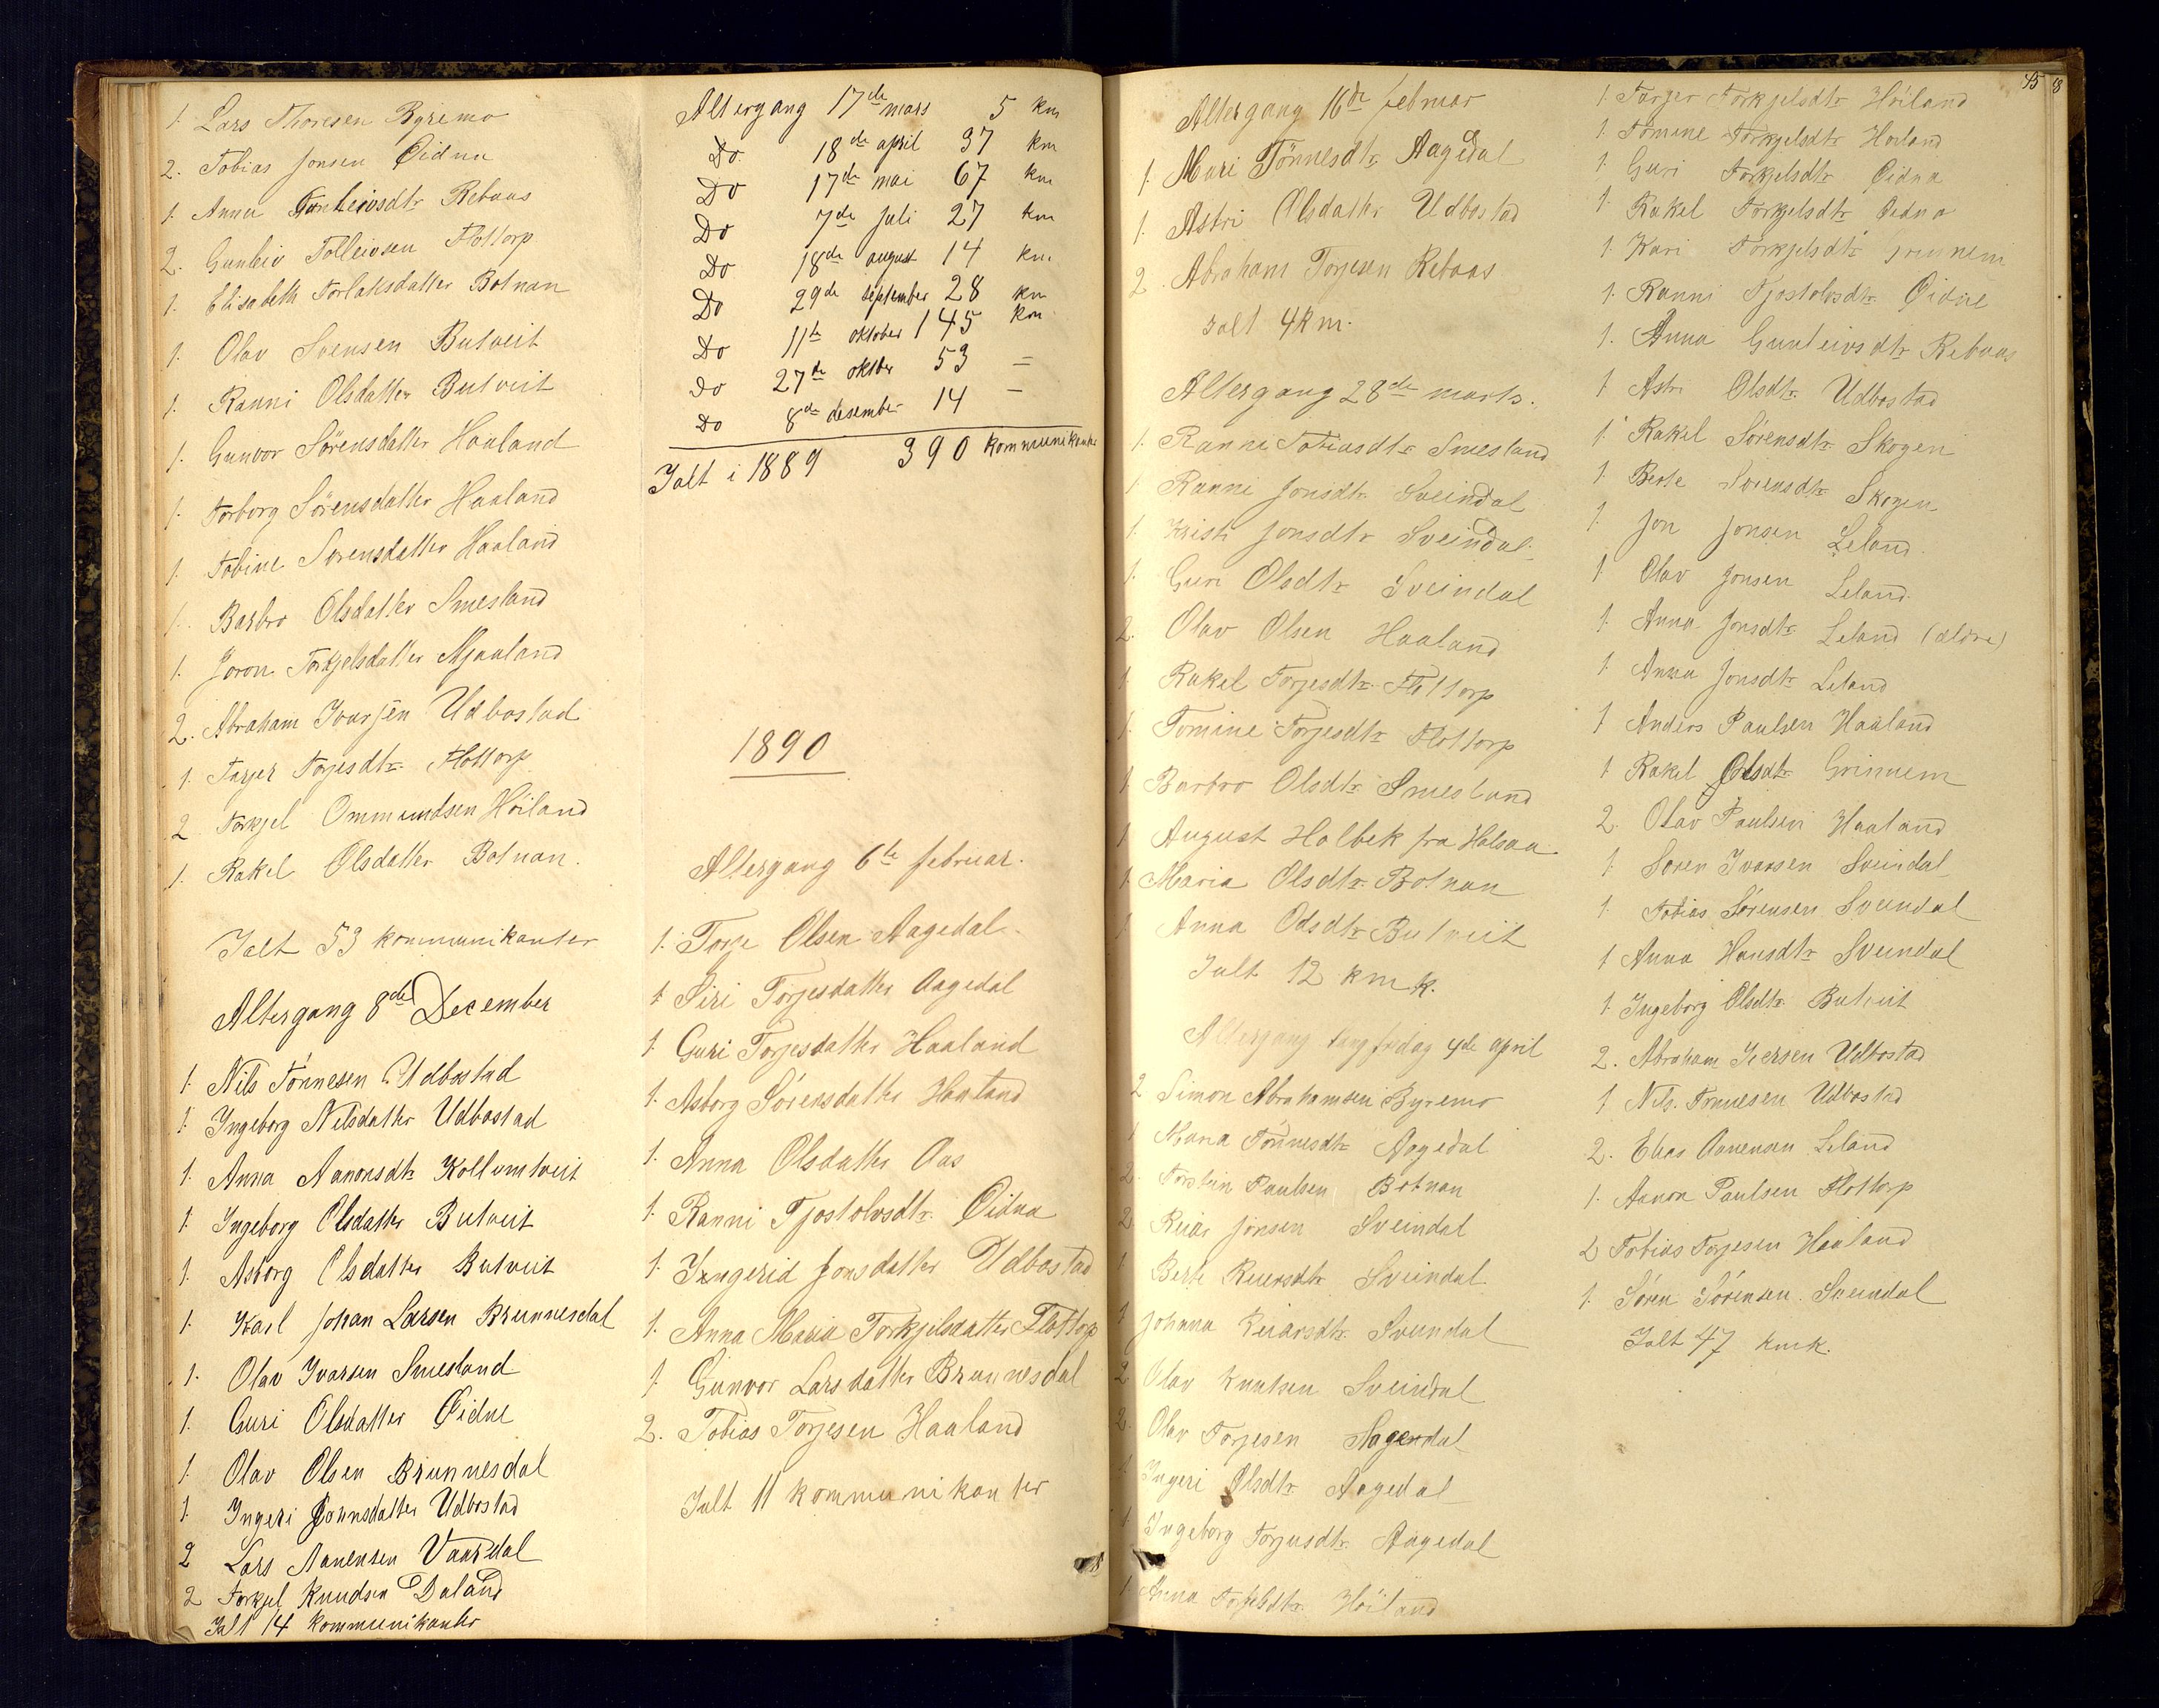 1. Lars Thoresen Byremo
2. Tobias Jonsen Øidna
1. Anna Gunleivsdtr Rebaas
2. Gunleiv Tolleivsen Flottorp
1. Elisabeth Torlaksdatter Botnan
1. Olav Svensen Butveit
1. Ranni Olsdatter Butveit
1. Gunvor Sörensdatter Haaland
1. Torborg Sörensdatter Haaland
1. Tobine Sörensdatter Haaland
1. Barbro Olsdatter Smesland
1. Joron Torkjelsdatter Mjaaland
2. Abraham Ivarsen Udbostad
1. Tarjer Torjesdtr. Flottorp
2 Torkjel Ommundsen Höiland
1. Rakel Olsdatter Botnan.
Ialt 53 kommunikanter
Altergang 8de December
1. Nils Tönnesen Udbostad
1. Ingeborg Nilsdatter Udbostad
1. Anna Aanonsdtr Kollumtveit
1. Ingeborg Olsdatter Butveit
1. Asborg Olsdatter Butveit
1. Karl Johan Larsen Brunnesdal
1. Olav Ivarsen Smesland
1. Guri Olsdatter Øidne
1. Olav Olsen Brunnesdal
1. Ingeri Jonnsdatter Udbostad
2 Lars Aanensen Vaardal
2 Torkjel Knudsen Daland
Ialt 14 kommunikanter
Altergang 17de mars 5 km
Do 18de april 37 km
Do 17de mai 67 km
Do 7de juli 27 km
Do 18de august 14 km
Do 29de september 28 km
Do 11te oktober 145 km
Do 27de oktober 53 =
Do 8de desember 14 –
Ialt i 1889 390 kommunikanter
1890
Altergang 6te februar.
1. Torje Olsen Aagedal.
1. Siri Torjesdatter Aagedal
1. Guri Torjesdatter Haaland
1. Asborg Sörensdatter Haaland
1. Anna Olsdatter Aas
1. Ranni Tjostolvsdtr. Øidna
1. Ingerid Jonsdatter Udbostad
1. Anna Maria Torkjelsdatter Flottorp
1. Gunvor Larsdatter Brunnesdal
2. Tobias Torjesen Haaland
Ialt 11 kommunikanter
Altergang 16de februar
1. Mari Tönnesdtr. Aagedal
1. Astri Olsdatter Udbostad
2. Abraham Torjesen Rebaas
Ialt 4 km.
Altergang 28de marts.
1. Ranni Tobiasdtr. Smesland
1 Ranni Jonsdtr. Sveindal
1. Kristi Jonsdtr Sveindal.
1. Guri Olsdtr Sveindal
2. Olav Olsen Haaland
1 Rakel Torjesdtr. Flottorp
1. Tomine Torjesdtr Flottorp
1 Barbro Olsdtr. Smesland
1 August Holbek fra Halsaa
1. Maria Olsdtr. Botnan
1 Anna Olsdtr Butveit
Ialt 12 kmk.
Altergang langfredag 4de april
2 Simon Abrahamsen Byremo
1 Maria Tönnesdtr Aagedal
2. Torstein Paulsen Botnan
2. Reiar Jonsen Sveindal
1 Berte Reiersdtr Sveindal
1 Johana Reiarsdtr. Sveindal
2 Olav Knutsen Sveindal
2. Olav Torjesen Aagendal
1 Ingeri Olsdtr. Aagedal
1. Ingeborg Torjusdtr. Aagedal
1. Anna Torkjelsdtr. Höiland
45
1. Tarjer Torkjelsdtr Höiland
1. Tomine Torkjelsdtr Höiland
1 Guri Torkjelsdtr Øidna
1. Rakel Torkjelsdtr Øidna
1. Kari Torkjelsdtr
1. Ranni Tjostolvsdtr. Øidne
1. Anna Gunleivsdtr Rebaas
1 Astri Olsdtr. Udbostad
1. Rakel Sörensdtr. Skogen
1. Berte Svensdtr Skogen
1. Jon Jonsen Leland.
1. Olav Jonsen Leland.
1. Anna Jonsdtr. Leland (eldre)
1 Anna Jonsdtr. Leland
1 Anders Paulsen Haaland
1 Rakel Olsdtr. Grinnem
2. Olav Paulsen Haaland
1. Sören Ivarsen Sveindal
1. Tobias Sörensen Sveindal
1 Anna Hansdtr. Sveindal
1. Ingeborg Olsdtr Butveit
2. Abraham Iversen Udbostad
1 Nils. Tönnesen Udbostad
2. Elias Aanensen Leland
1. Aanon Paulsen Flottorp
2 Tobias Torjesen Haaland
1. Sören Sörensen. Sveindal
Ialt 47 kmk.